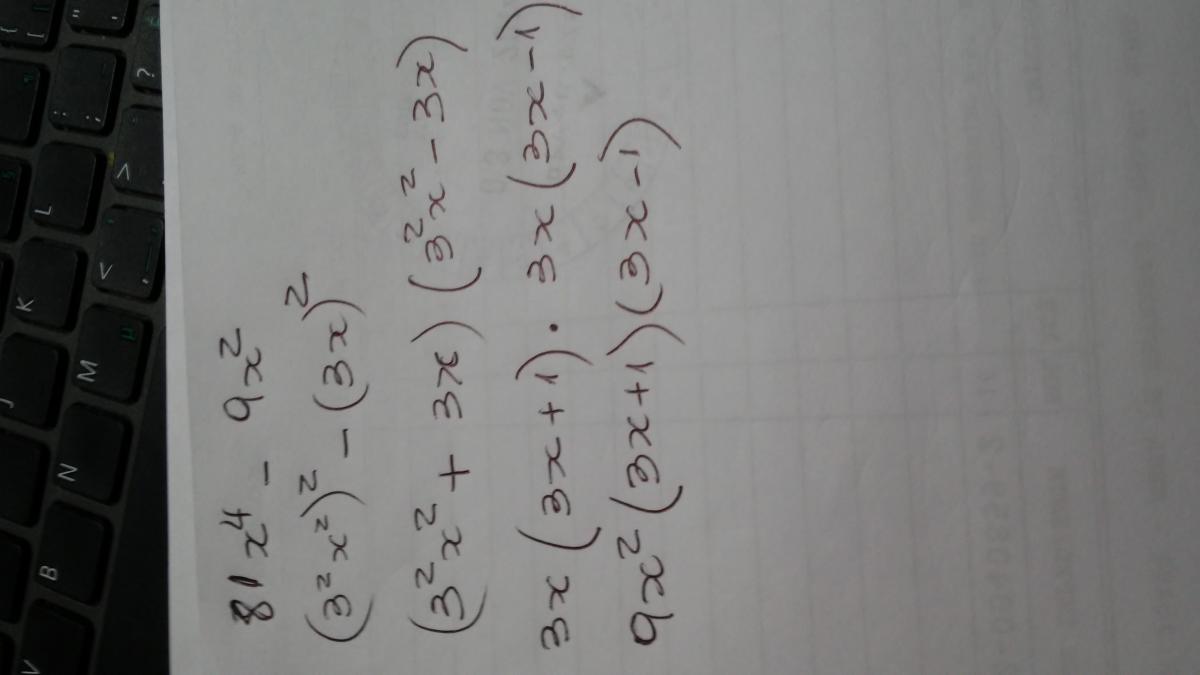 81x⁴ - 9x²
(3²x²)² - (3x)²
(3²x² + 3x) (3²x² - 3x)
3x (3x+1) · 3x (3x-1)
9x² (3x+1) (3x-1)
V
B
N
M
J
K
L
<
>
?
:
;
"
{
[